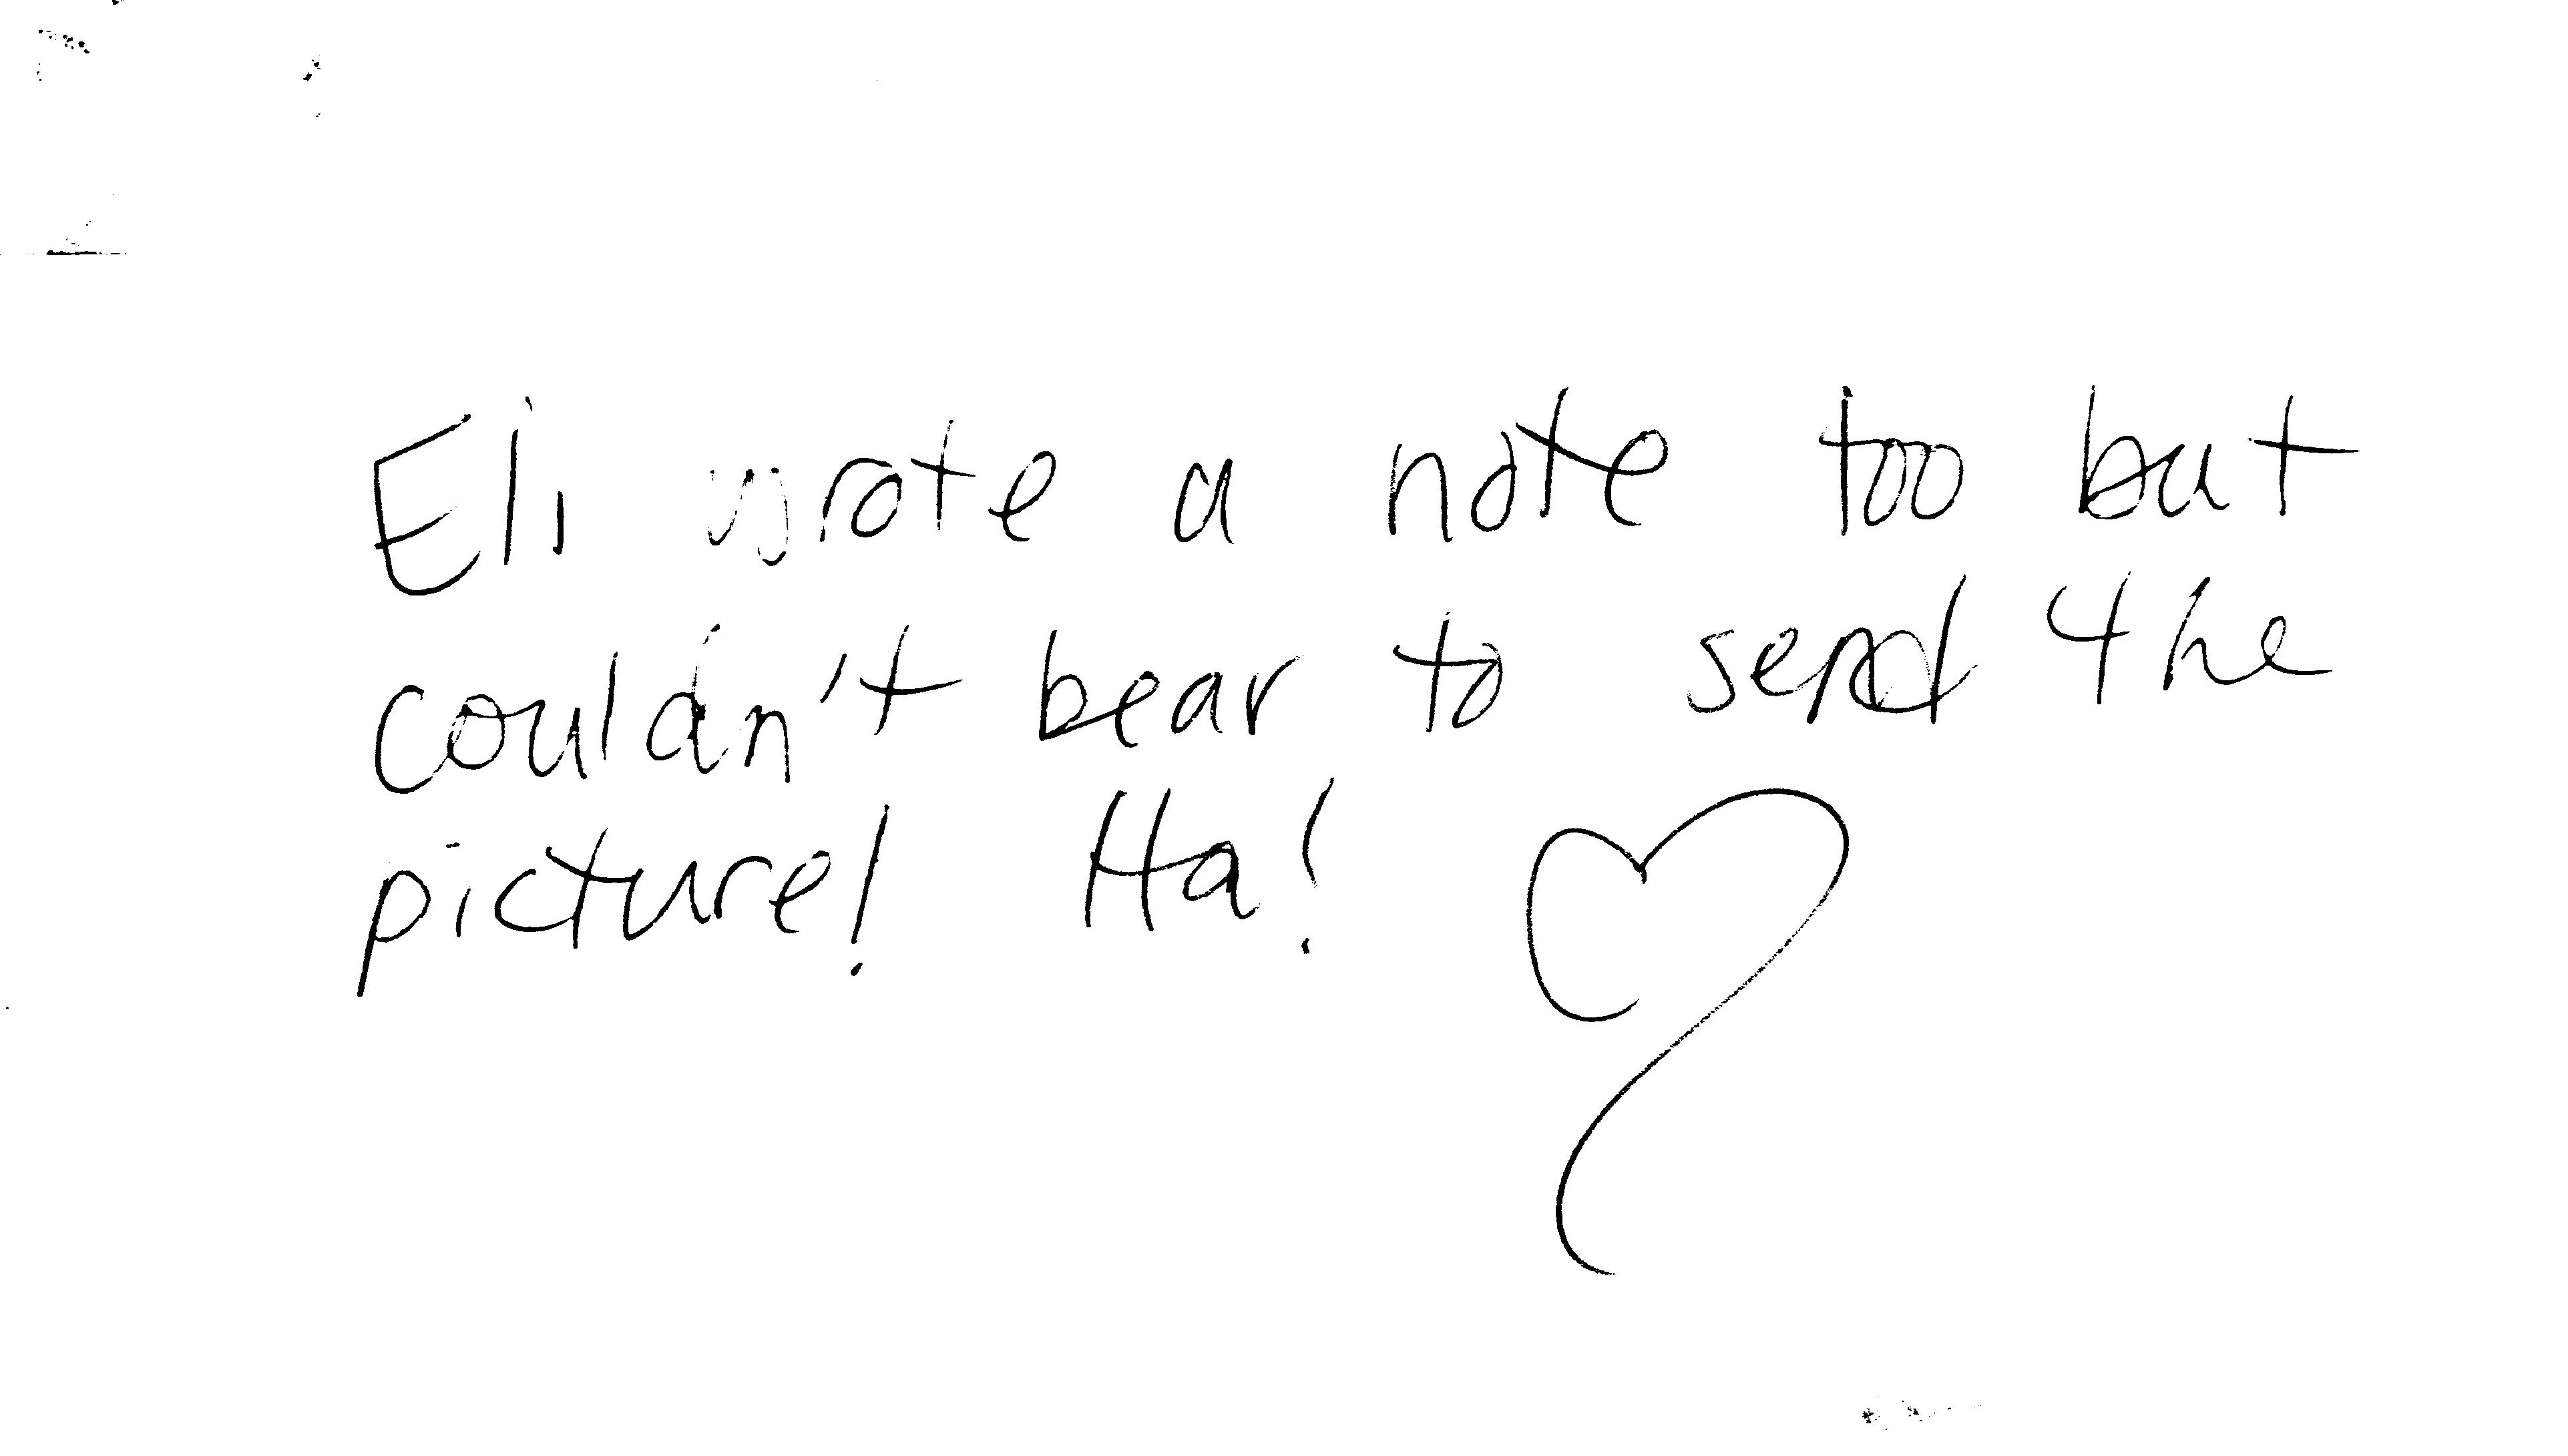 Eli wrote a note too but
couldn't bear to send the
picture! Ha!